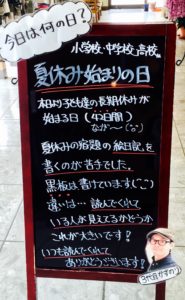 今日は何の日?
小学校・中学校・高校
夏休み始まりの日
本日より子ども達の長期休みが
始まる日(42日間)
なが〜('o')
夏休みの宿題の「絵日記」を
書くのが苦手でした。
黒板は書けていますが(^^)
違いは…読んでくれて
いる人が見えてるかどうか
これが大きいです!
いつも読んでくれて
ありがとうございます!